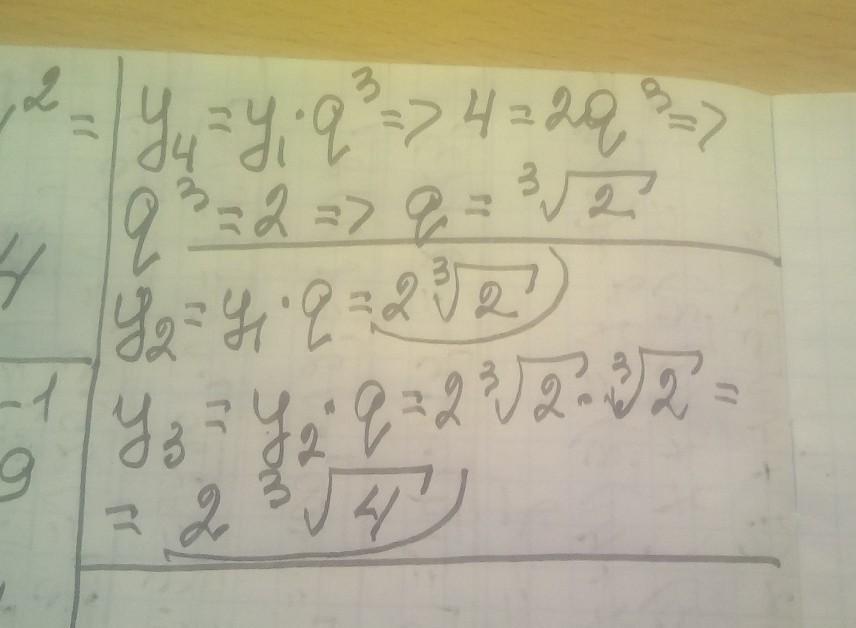 ² =
y₄ = y₁ · q³ => 4 = 2q³ =>
q³ = 2 => q = ³√2
4
y₂ = y₁ · q = 2³√2
-1
y₃ = y₂ · q = 2³√2 · ³√2 =
9
= 2 ³√4